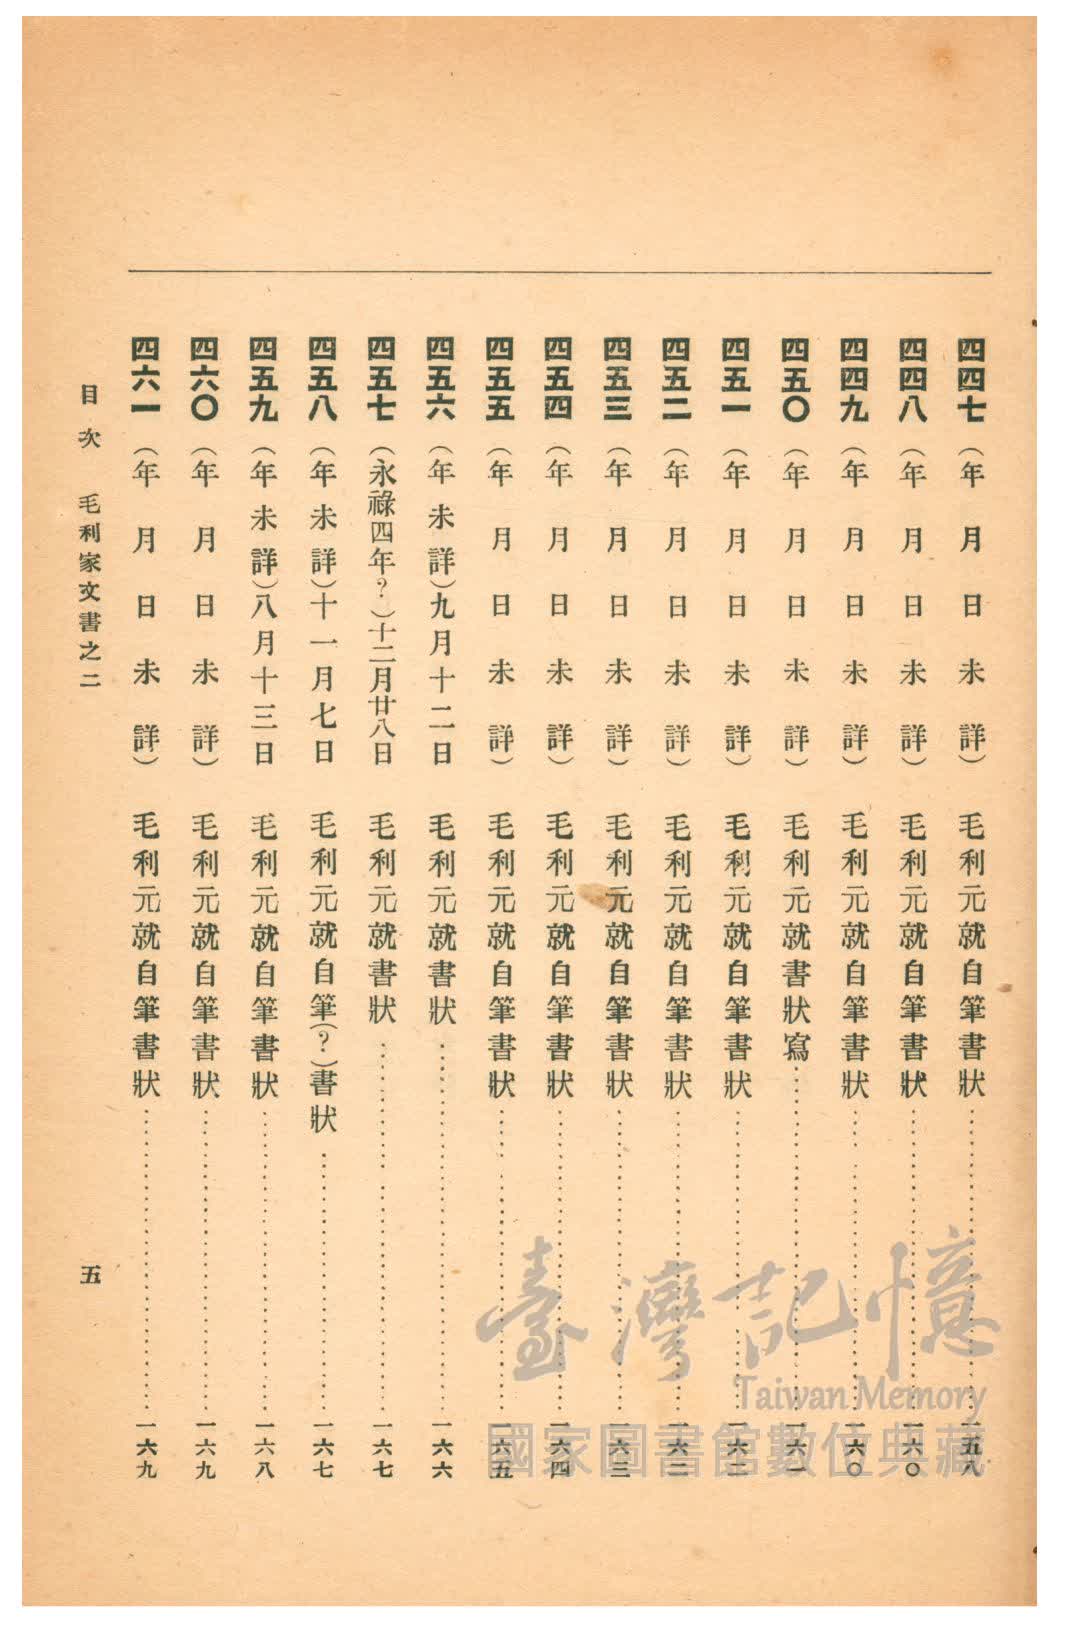 四四七 (年月日未詳) 毛利元就自筆書狀……一五八
四四八 (年月日未詳) 毛利元就自筆書狀……一六〇
四四九 (年月日未詳) 毛利元就自筆書狀……一六〇
四五〇 (年月日未詳) 毛利元就書狀寫……一六一
四五一 (年月日未詳) 毛利元就自筆書狀……一六二
四五二 (年月日未詳) 毛利元就自筆書狀……一六二
四五三 (年月日未詳) 毛利元就自筆書狀……一六三
四五四 (年月日未詳) 毛利元就自筆書狀……一六四
四五五 (年月日未詳) 毛利元就自筆書狀……一六五
四五六 (年未詳)九月十二日 毛利元就書狀……一六六
四五七 (永祿四年?)十二月廿八日 毛利元就書狀……一六七
四五八 (年未詳)十一月七日 毛利元就自筆(?)書狀……一六七
四五九 (年未詳)八月十三日 毛利元就自筆書狀……一六八
四六〇 (年月日未詳) 毛利元就自筆書狀……一六九
四六一 (年月日未詳) 毛利元就自筆書狀……一六九
目次 毛利家文書之二 五
臺灣記憶
Taiwan Memory
國家圖書館數位典藏